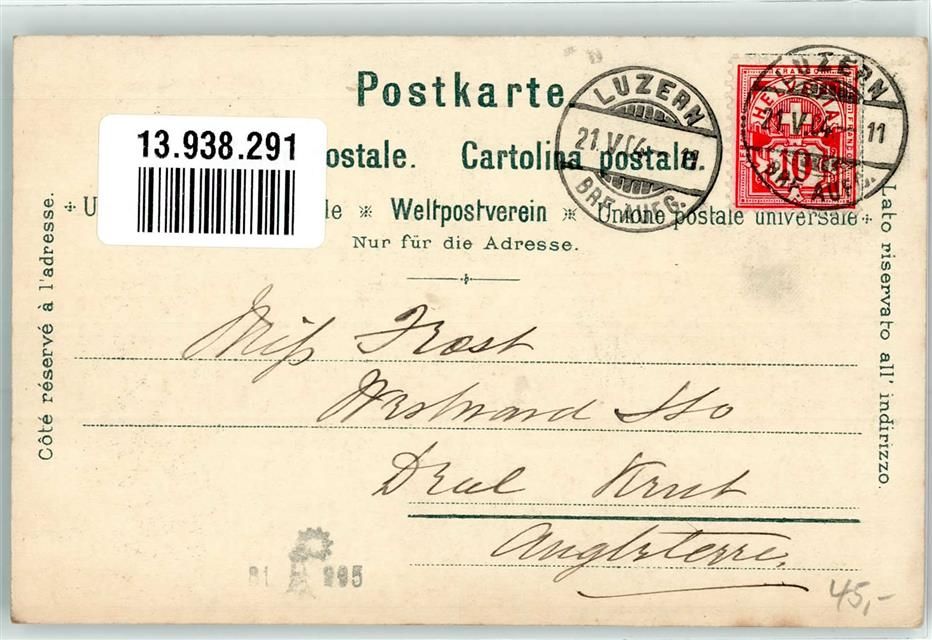 Postkarte.
13.938.291
ostale. Cartolina postale.
U le Weltpostverein Unione postale universale
Nur für die Adresse.
Côté réservé à l'adresse.
Lato riservato all' indirizzo.
LUZERN
21.V.04- 11
BRF. AUFG.
HELVETIA
10
LUZERN
21.V.04- 11
BRF. AUFG.
Miss Frost
Westward Ho
Deal Kent
Angleterre
81 995
45,-